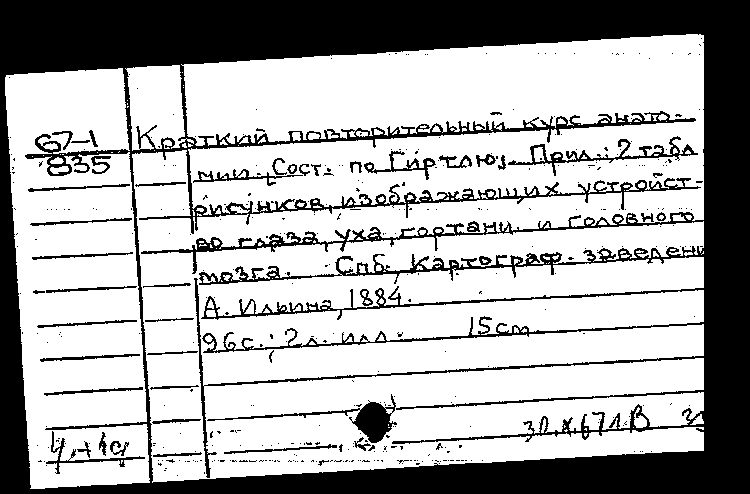 67-1
835
Краткий повторительный курс анато-
мии. Сост. по Гиртлю. Прил.: 2 табл
рисунков, изображающих устройст-
во глаза, уха, гортани и головного
мозга. Спб., Картограф. заведени
А. Ильина, 1884.
96с.; 2л. илл. 15cm.
30.X.67